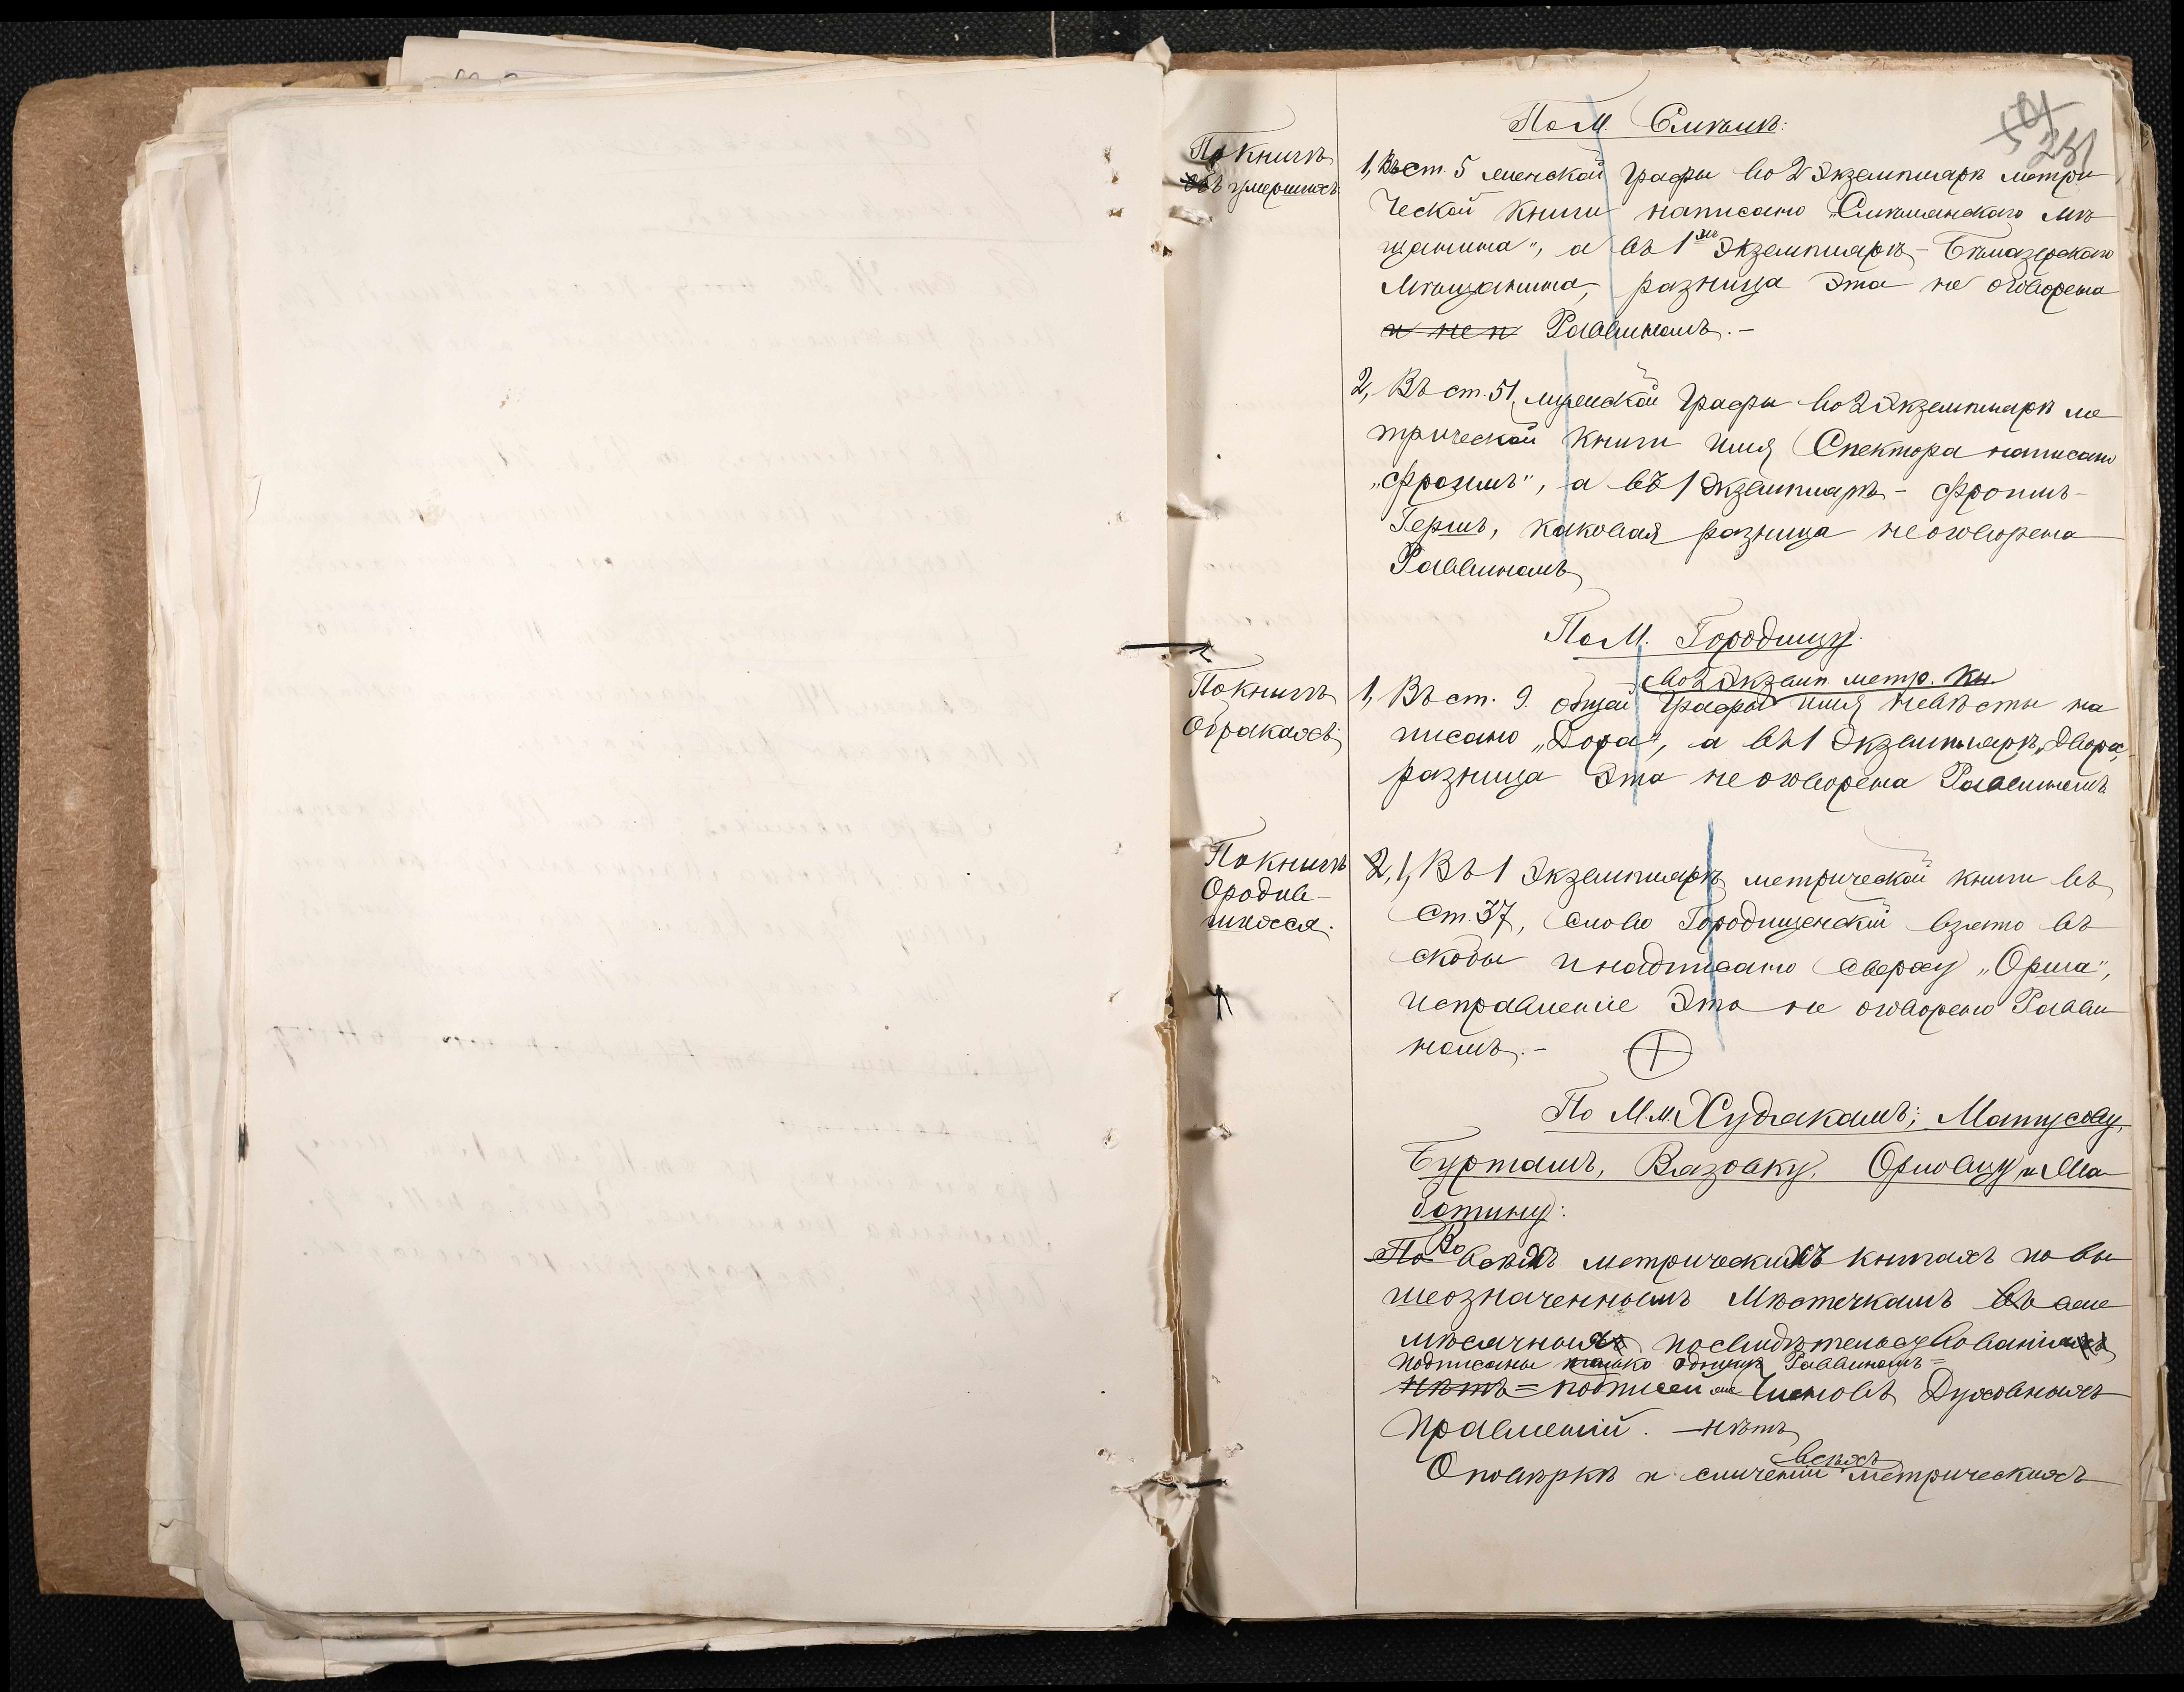 281
По М. Смѣлѣ:
По книгѣ
объ умершихъ
1, Въ ст. 5 женской графы во 2 Экземплярѣ метри
ческой книги написано „Смѣлянскаго мѣ
щанина", а въ 1мъ Экземплярѣ –
Мѣщанина, разница эта не оговорена
и не п Раввиномъ. –
2, Въ ст. 51, мужской графы во 2 Экземплярѣ ме
трической книги имя Спектора написано
„Фроимъ", а въ 1 Экземплярѣ – Фроимъ-
Гершъ, каковая разница не оговорена
Раввиномъ
По М. Городищу.
во 2 Экземп. метр. кн.
По книгѣ
о бракахъ
1, Въ ст. 9. общей графы имя невѣсты на
писано „Дора", а въ 1 Экземплярѣ „Двора",
разница Эта не оговорена Раввиномъ
По книгѣ
о родив-
шихся.
2, 1, Въ 1 Экземплярѣ метрической книги въ
ст. 37, слово Городищенскій взято въ
скобы и надписано сверху „Орша",
исправленіе Это не оговорено Равви
номъ. –
По М.м. Худякамъ; Матусову,
Буртамъ, Вязовку, Орловцу и Ма-
ботину:
По Во всѣхъ метрическихъ книгахъ по вы
шеозначеннымъ Мѣстечкамъ въ еже
мѣсячныхъ посвидѣтельствованіяхъ
подписаны только однимъ Раввиномъ =
нѣтъ = подписей же Членовъ Духовныхъ
Правленій. – нѣтъ
всѣхъ
О повѣркѣ и сличеніи метрическихъ